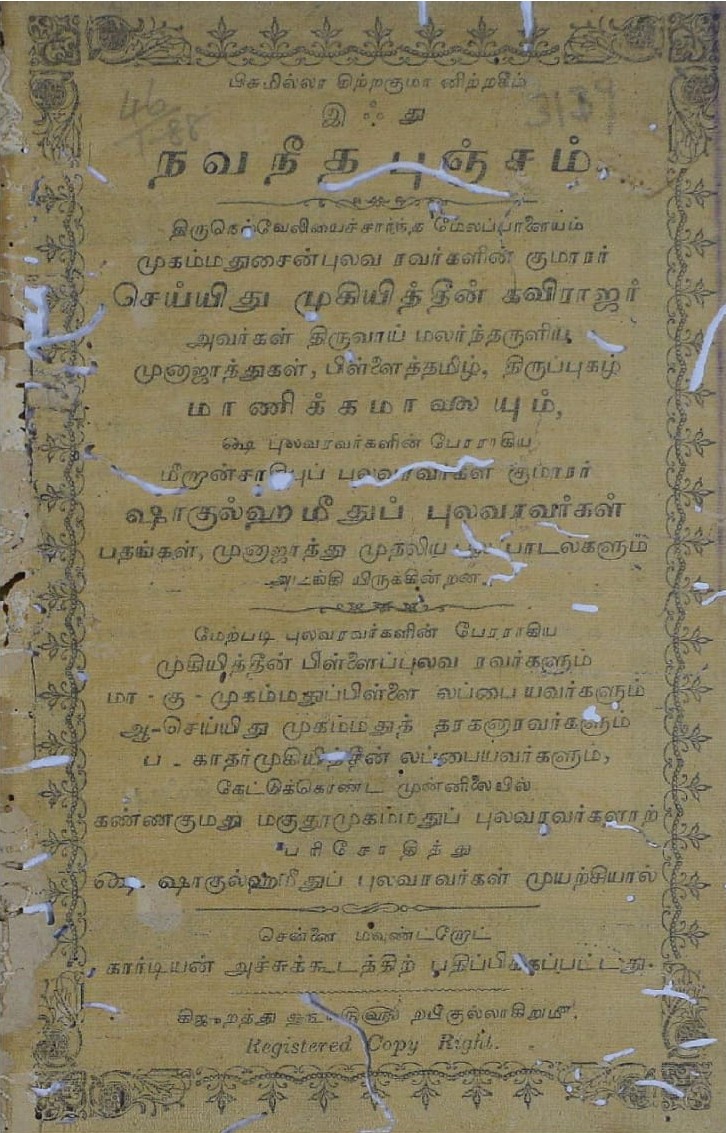 பிசுமில்லா கிற்றகுமா னிற்றகீம்
46 3139
1-88
இஃது
நவநீதபுஞ்சம்.
திருநெல்வேலியைச்சார்ந்த மேலப்பாளையம்
முகம்மதுசைன்புலவ ரவர்களின் குமாரர்
செய்யிது முகியித்தீன் கவிராஜர்
அவர்கள் திருவாய் மலர்ந்தருளிய
முனாஜாத்துகள், பிள்ளைத்தமிழ், திருப்புகழ்
மாணிக்கமாலையும்,
௸ புலவரவர்களின் பேரராகிய
மீறான்சாகிபுப் புலவரவர்கள் குமாரர்
ஷாகுல்ஹமீதுப் புலவரவர்கள்
பதங்கள், முனாஜாத்து முதலிய பாடல்களும்
அடங்கி யிருக்கின்றன.
மேற்படி புலவரவர்களின் பேரராகிய
முகியித்தீன் பிள்ளைப்புலவ ரவர்களும்
மா - கு - முகம்மதுப்பிள்ளை லப்பை யவர்களும்
ஆ-செய்யிது முகம்மதுத் தரகனாரவர்களும்
ப - காதர்முகியித்தீன் லப்பையவர்களும்,
கேட்டுக்கொண்ட முன்னிலையில்
கண்ணகுமது மகுதூமுகம்மதுப் புலவரவர்களாற்
பரிசோதித்து
௸. ஷாகுல்ஹமீதுப் புலவரவர்கள் முயற்சியால்
சென்னை மவுண்ட்ரோட்
கார்டியன் அச்சுக்கூடத்திற் பதிப்பிக்கப்பட்டது.
கிஜுறத்து றபீகுல்லாகிறுமீ.
Registered Copy Right.